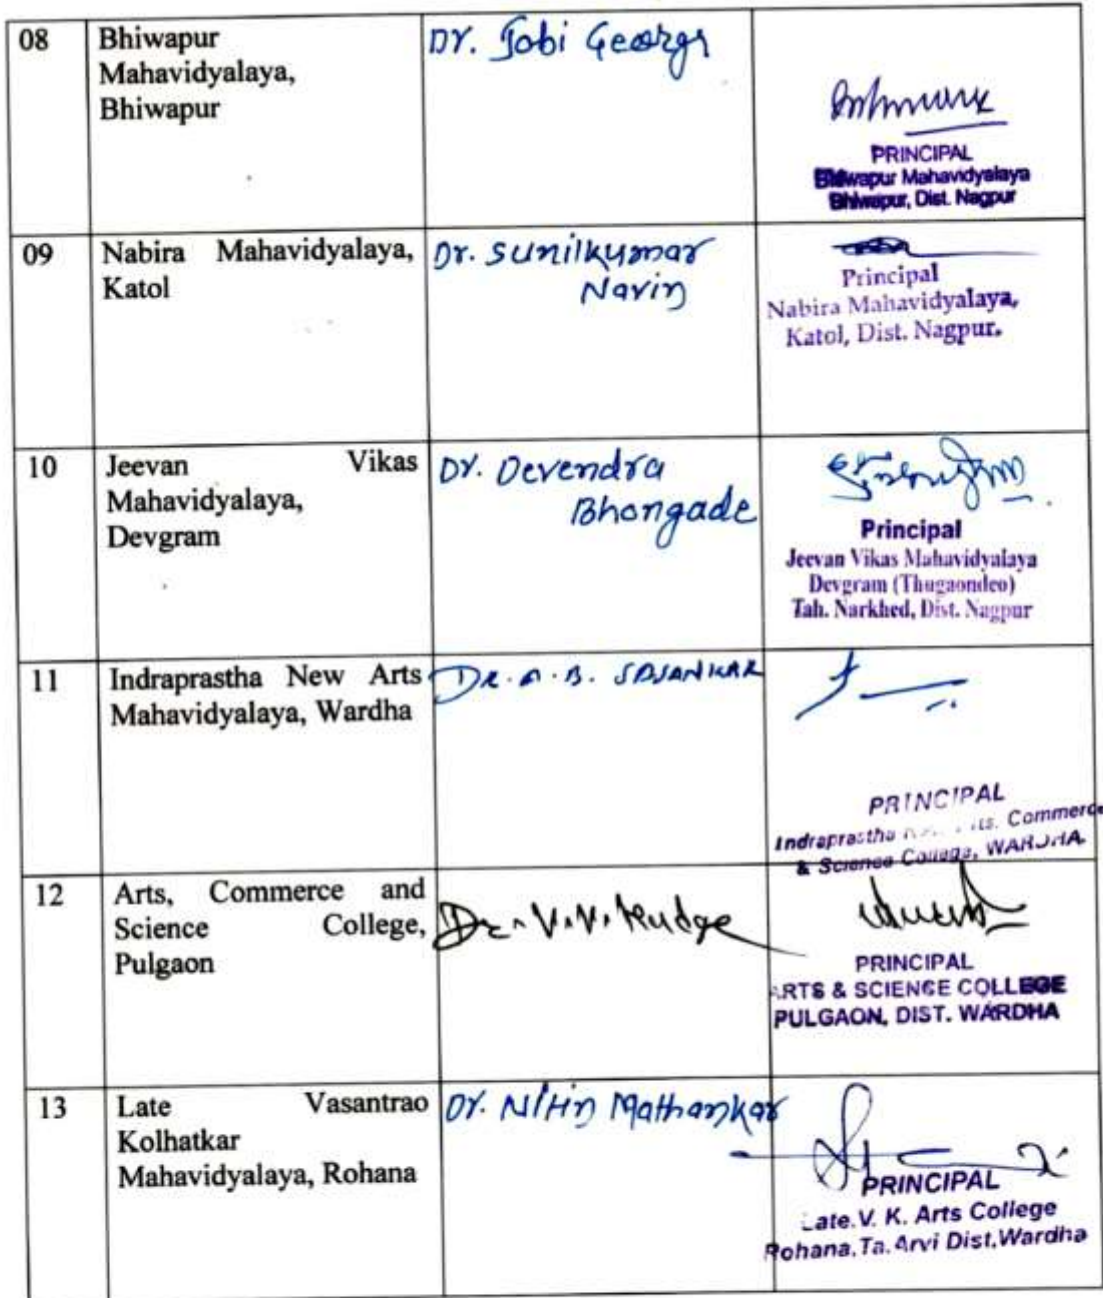 08
Bhiwapur
Mahavidyalaya,
Bhiwapur
Dr. Jobi George
PRINCIPAL
Bhiwapur Mahavidyalaya
Bhiwapur, Dist. Nagpur
09
Nabira Mahavidyalaya,
Katol
Dr. Sunilkumar
Navin
Principal
Nabira Mahavidyalaya,
Katol, Dist. Nagpur.
10
Jeevan Vikas
Mahavidyalaya,
Devgram
Dr. Devendra
Bhongade
Principal
Jeevan Vikas Mahavidyalaya
Devgram (Thugaondeo)
Tah. Narkhed, Dist. Nagpur
11
Indraprastha New Arts
Mahavidyalaya, Wardha
DR. A. B. SASANKAR
PRINCIPAL
Indraprastha Commerce
& Science College, WARDHA
12
Arts, Commerce and
Science College,
Pulgaon
Dr. V.V. Kudge
PRINCIPAL
ARTS & SCIENCE COLLEGE
PULGAON, DIST. WARDHA
13
Late Vasantrao
Kolhatkar
Mahavidyalaya, Rohana
Dr. Nitin Mathankar
PRINCIPAL
Late.V. K. Arts College
Rohana,Ta.Arvi Dist,Wardha